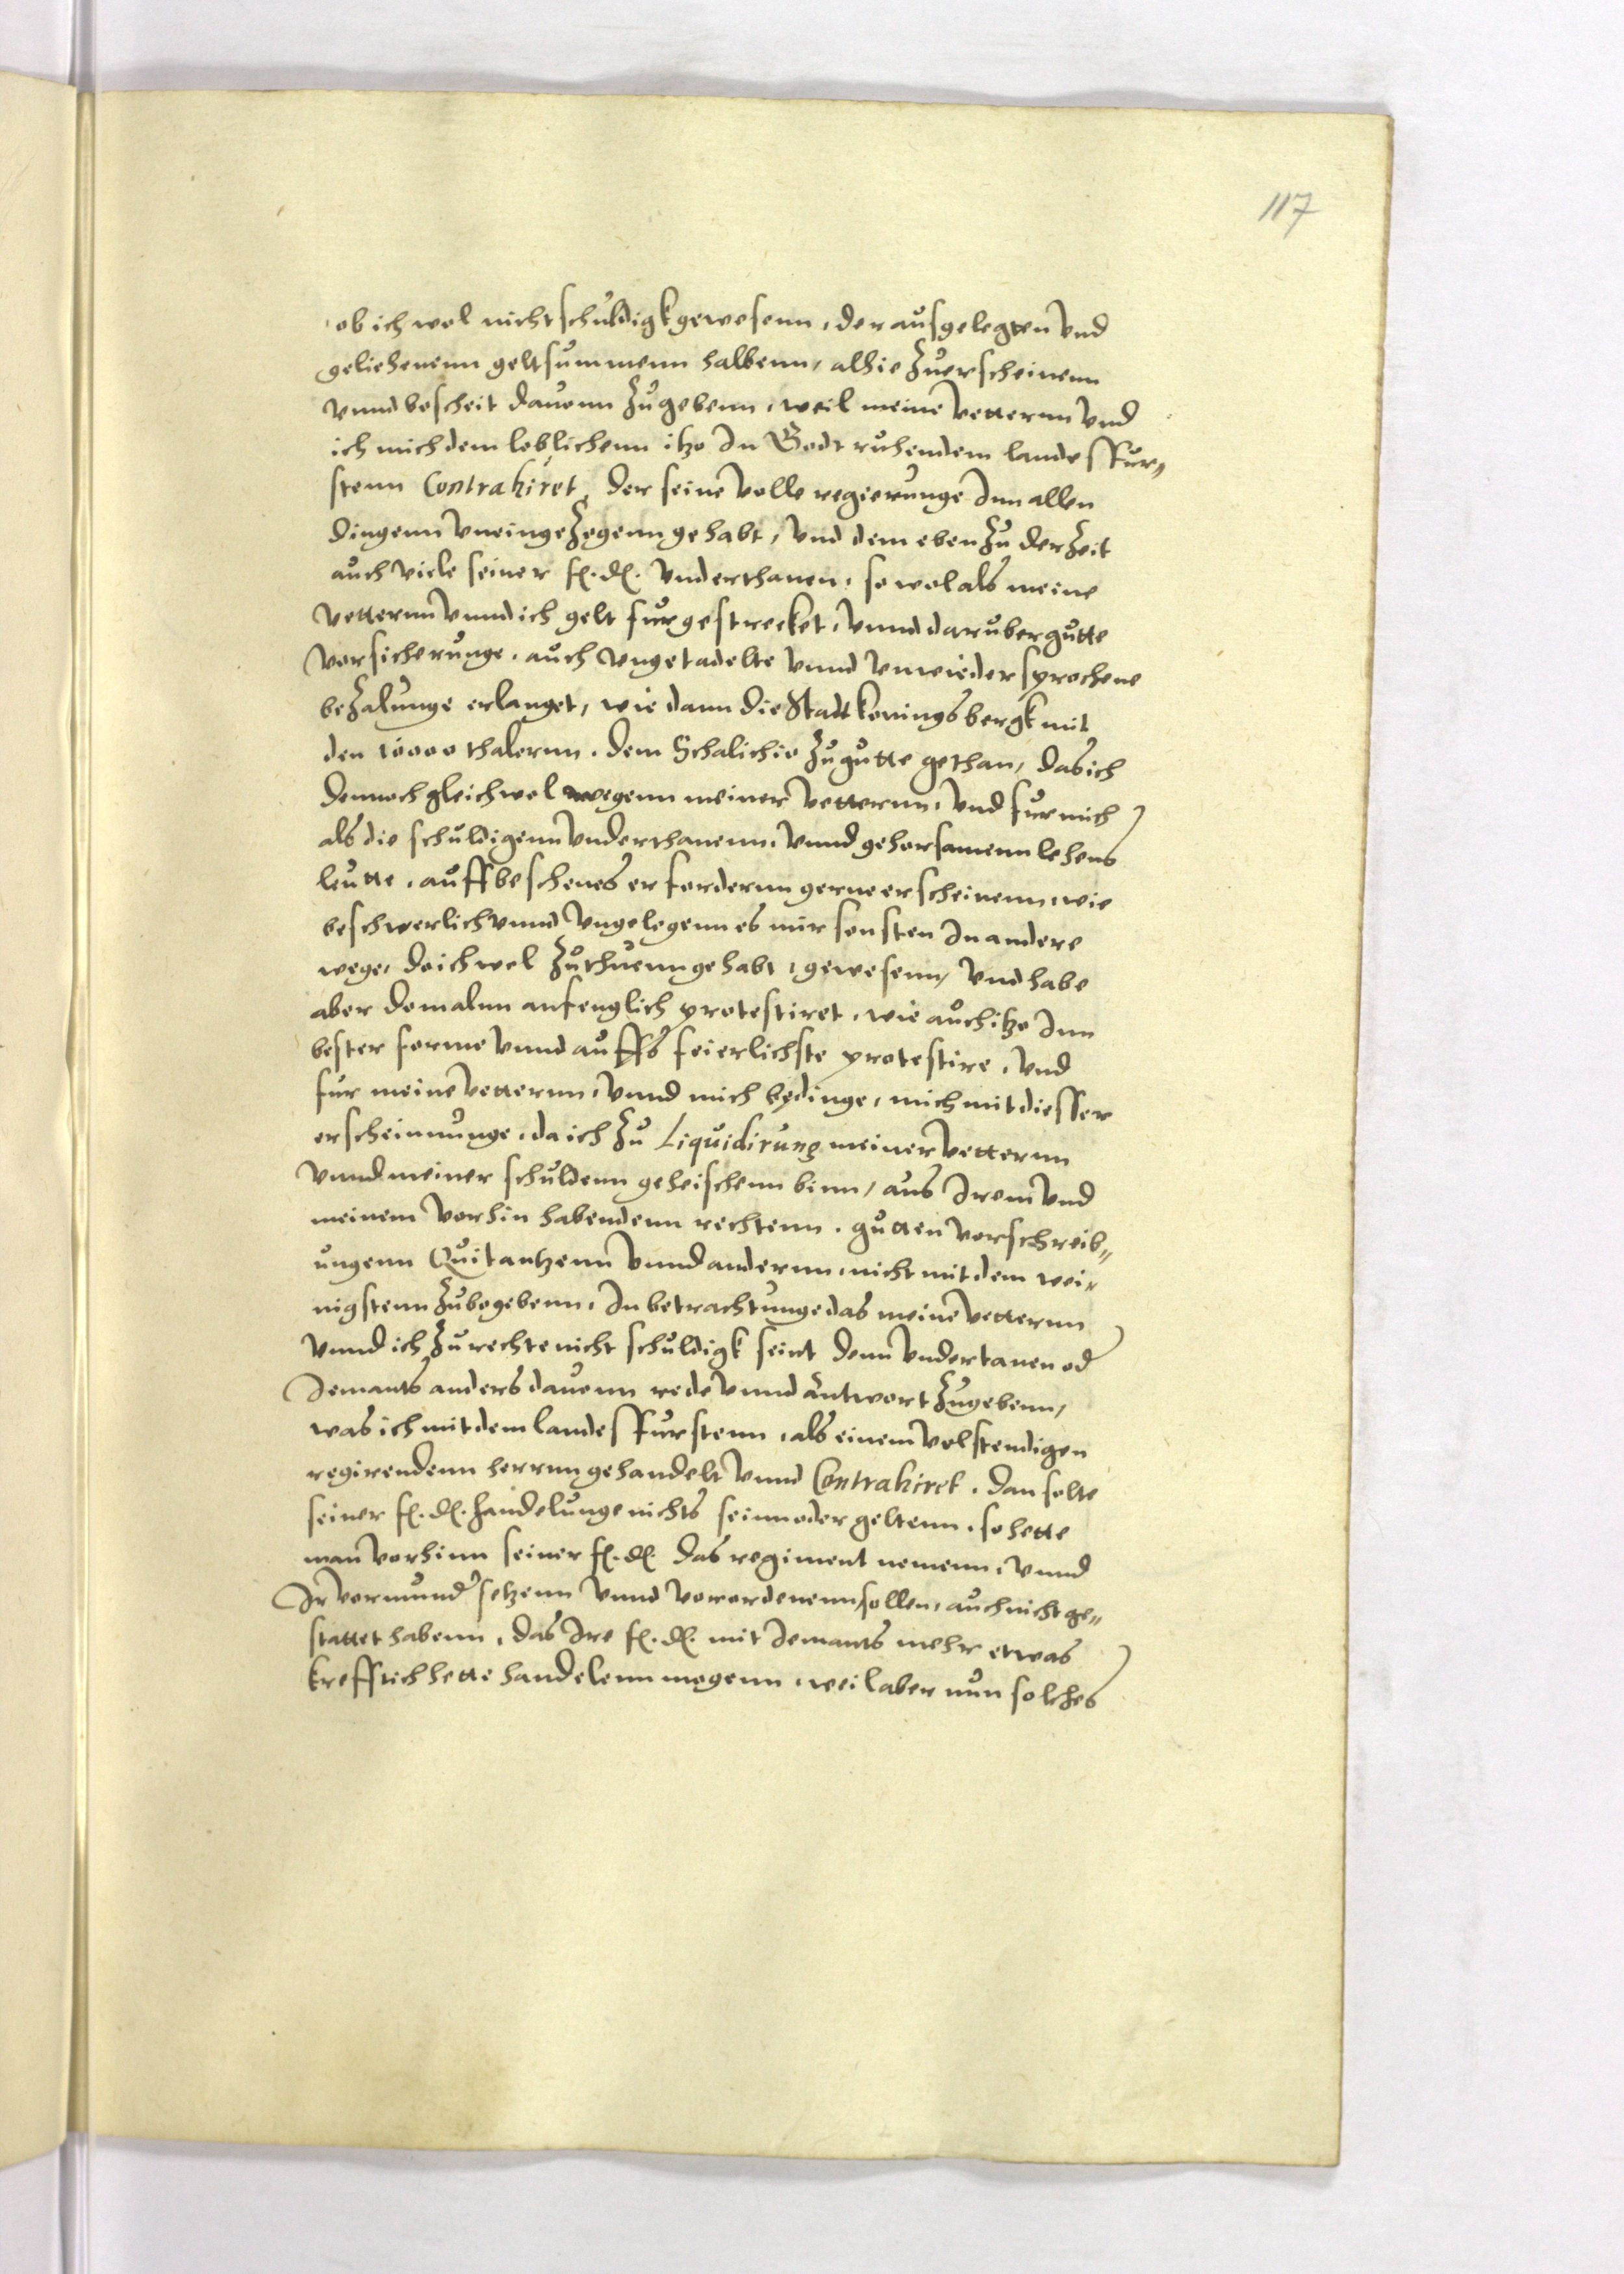 117
ob ich wol nicht schuldigk gewesenn, der ausgelegten vnd
geliehenenn geltsummenn halbenn, alhie zuerscheinenn
vnnd bescheit dauonn zugebenn, weil meine vetternn vnd
ich mich dem loblichenn itzo in Godt ruhendem landesfur„
stenn Contrahiret, der seine volle regierunge Inn allen
dingenn vneingezogenn gehabt, vnd dem eben zu der zeit
auch viele seiner f. d. vnderthanen, so wol als meine
vetternn vnnd ich gelt furgestrecket, vnnd daruber gutte
vorsicherunge, auch vngetadelte vnnd vnwiedersprochene
bezalunge erlanget, wie dann die Stadt konningsbergk mit
den 10000 thalernn, dem Schalichio zugutte gethan, das ich
dennoch gleichwol wegenn meiner vetternn, vnd fur mich
als die schuldigenn vnderthanenn, vnnd gehorsamenn lehens
leutte, auff beschenes erfordernn gerne erscheinenn, wie
beschwerlich vnnd vngelegenn es mir sonsten In andere
wege, do ich wol zuthuenn gehabt, gewesenn, vnd habe
aber domalnn anfenglich protestiret, wie auch itzo Inn
bester forme vnnd auffs feierlichste protestire, vnd
fur meine vetternn, vnnd mich bedinge, mich mit diesser
erscheinnunge, da ich zu Liquidirung meiner vetternn
vnnd meiner schuldenn geheischenn binn, aus Irem vnd
meinem vorhin habendenn rechtenn, gutten vorschreib„
ungenn Quitantzenn vnnd andernn, nicht mit dem wei„
nigstenn zubegebenn, In betrachtunge das meine vetternn
vnnd ich zu rechte nicht schuldigk seint denn vndertanen od
Jemants anders dauonn rede vnnd antwort zugebenn,
was ich mit dem landesfurstenn, als einem volstendigen
regirendenn herrnn gehandelt vnnd Contrahiret, dan solte
seiner f. d. handelunge nichts seinn oder geltenn, so hette
man vorhinn seiner f. d. das regiment nemenn, vnnd
Ir vormund setzenn vnnd vorordenenn sollen, auch nicht ge„
stattet habenn, das Ire f. d. mit Jemants mehr etwas
krefftich hette handelenn mogenn, weil aber nun solches